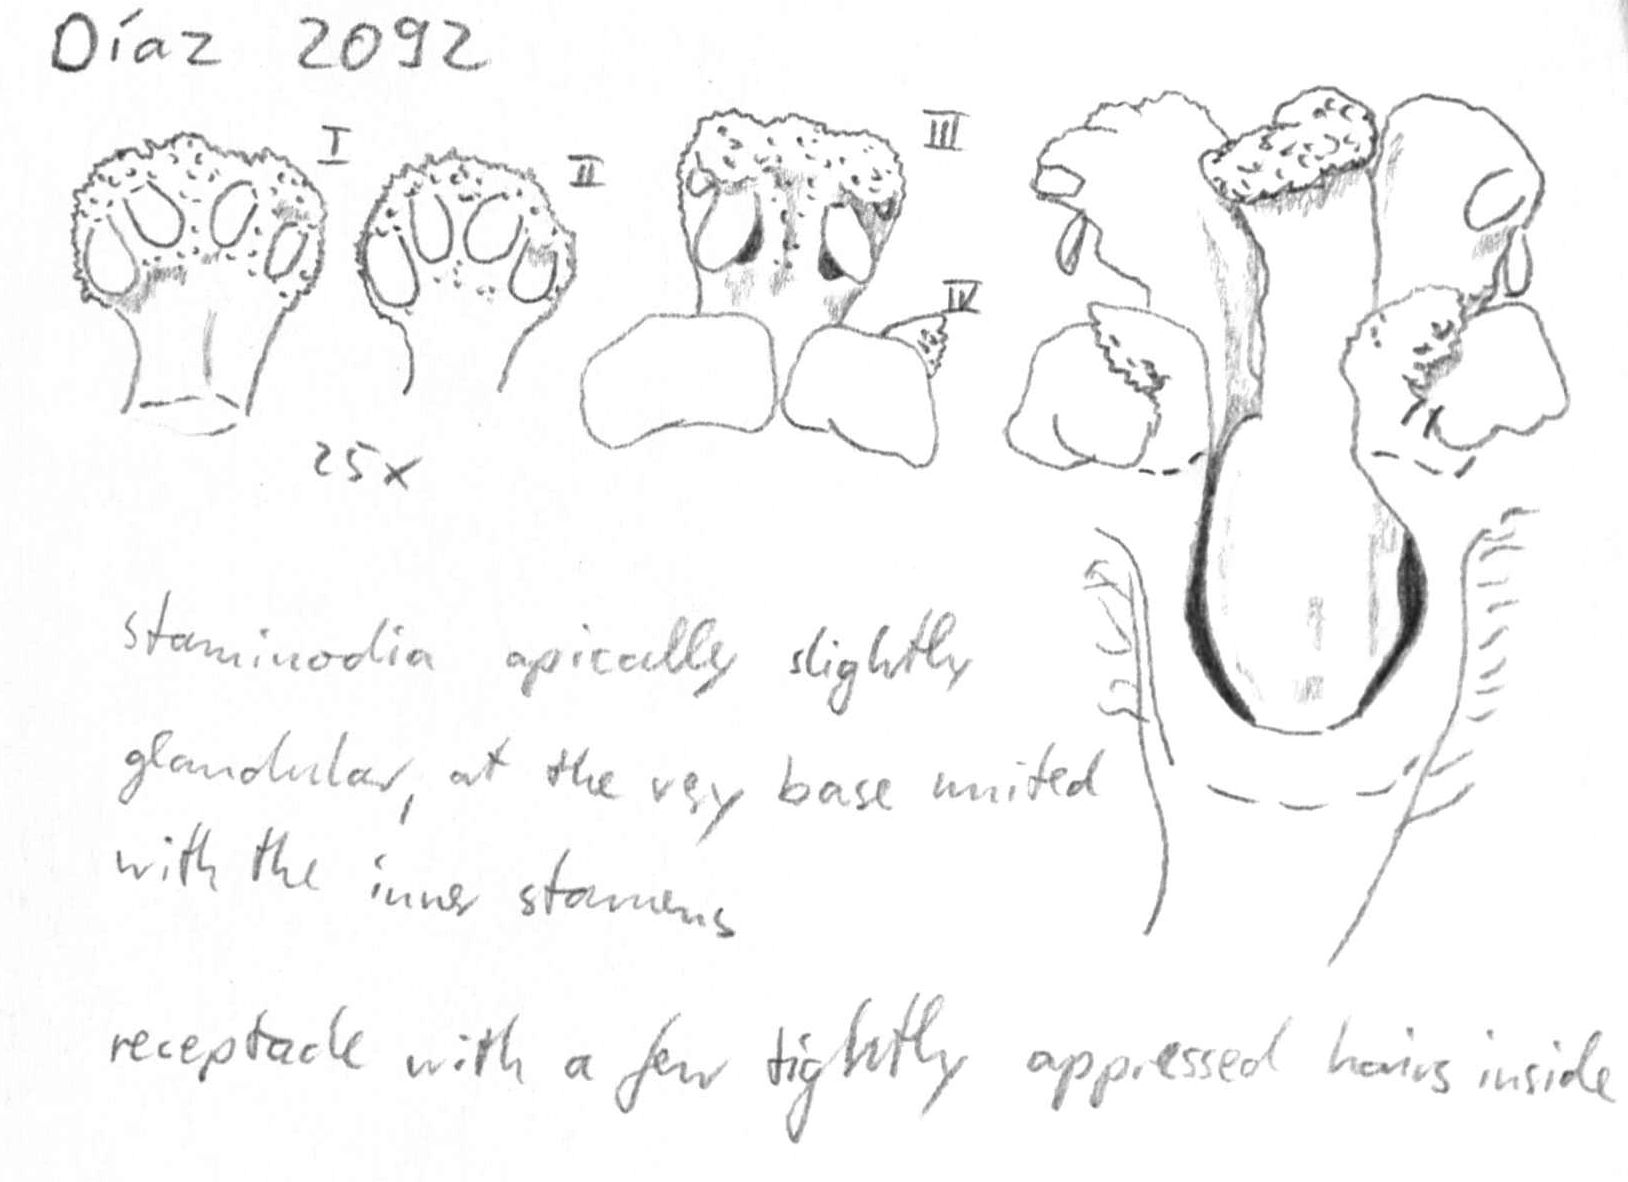 Díaz 2092
I
II
III
IV
25x
staminodia apically slightly
glandular, at the very base united
with the inner stamens
receptacle with a few tightly appressed hairs inside